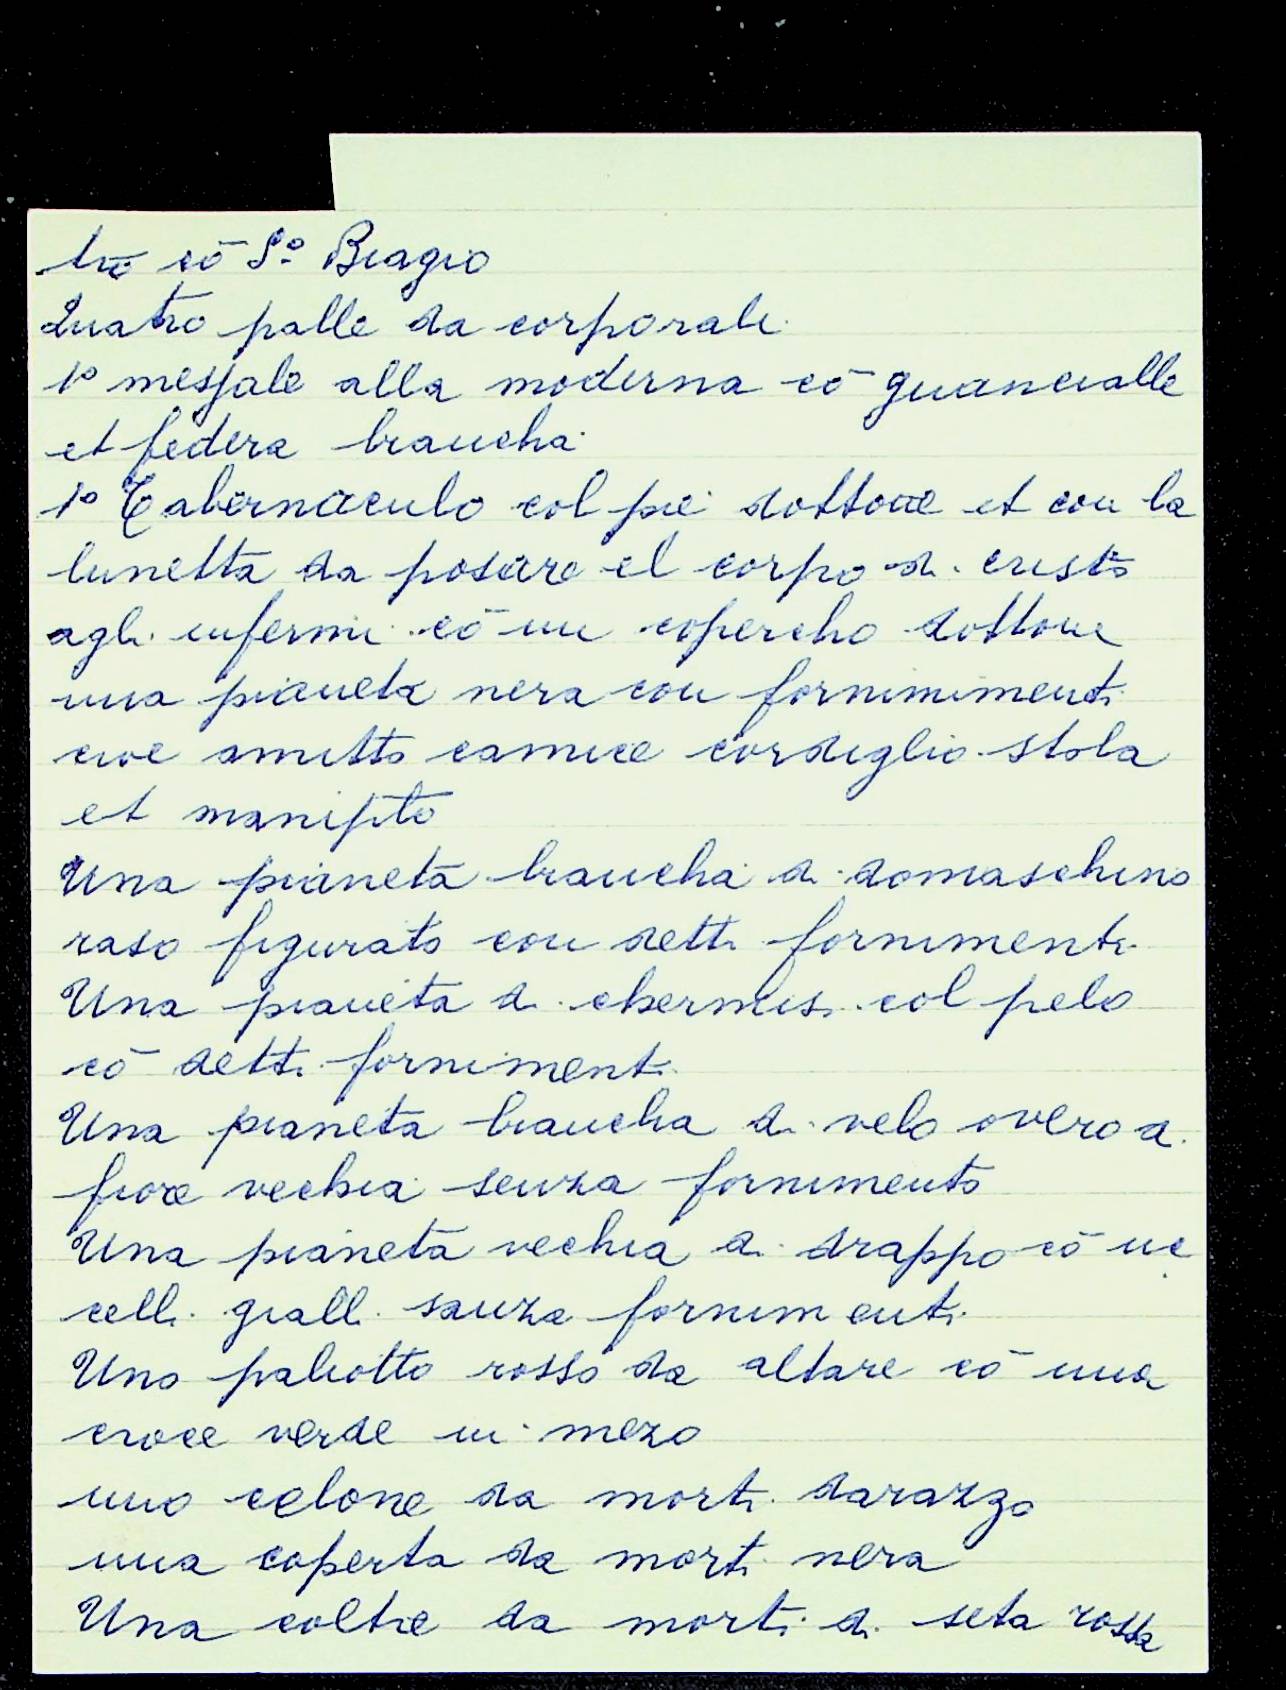 trō cō Sº Biagio
Quatro palle da corporali
1º messale alla moderna cō guancialle
et federa biancha
1º Tabernaculo col pie dottone et con la
lunetta da posare el corpo di cristo
agli infermi cō un coperchio dottone
una pianeta nera con fornimimenti
cioe amitto camice cordiglio stola
et manipito
Una pianeta biancha di domaschino
raso figurato con detti fornimenti
Una pianeta di chermisi col pelo
cō detti fornimenti
Una pianeta biancha di velo overo a
fiore vechia senza fornimento
Una pianeta vechia di drappo cō uc
celli gialli sanza fornimenti
Uno paliotto rosso da altare cō una
croce verde in mezo
uno celone da morti darazzo
una coperta da morti nera
Una coltre da morti di seta rossa